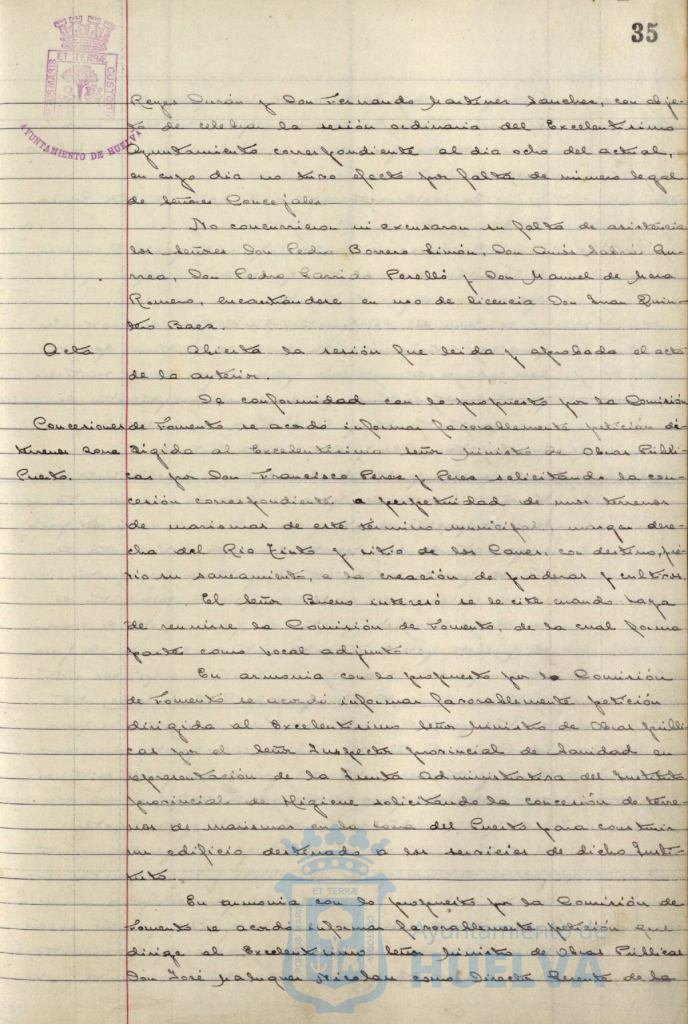 35
PORTUS MARIS
ET TERRÆ
CUSTODIA
AYUNTAMIENTO DE HUELVA
Reyes Durán y Don Fernando Martinez Sanchez, con obje-
to de celebrar la sesión ordinaria del Excelentísimo
Ayuntamiento correspondiente al dia ocho del actual,
en cuyo dia no tuvo efecto por falta de número legal
de Señores Concejales.
No concurrieron ni excusaron su falta de asistencia
los Señores Don Pedro Borrero Limón, Don
Don Pedro Garrido Perelló y Don Manuel de Mora
Romero, encontrándose en uso de licencia Don Juan Quin-
tero Baez.
Acta
Abierta la sesión fue leida y aprobada el acta
de la anterior.
Concesiones
terrenos zona
Puerto.
De conformidad con lo propuesto por la Comisión
de Fomento se acordó informar favorablemente petición di-
rigida al Excelentísimo Señor Ministro de Obras Públi-
cas por Don Francisco Perez y Perez solicitando la con-
cesión correspondiente a perpetuidad de unos terrenos
de marismas de este término municipal, margen dere-
cha del Rio Tinto y sitio de los con destino, pre-
vio su saneamiento, a la creación de praderas y cultivos.
El Señor Bueno interesó se le cite cuando haya
de reunirse la Comisión de Fomento, de la cual forma
parte como vocal adjunto.
En armonia con lo propuesto por la Comisión
de Fomento se acordó informar favorablemente petición
dirigida al Excelentísimo Señor Ministro de Obras públi-
cas por el Señor Inspector provincial de Sanidad en
representación de la Junta Administrativa del Instituto
provincial de Higiene solicitando la concesión de terre-
nos de marismas en la zona del Puerto para construir
un edificio destinado a los servicios de dicho Insti-
tuto.
En armonia con lo propuesto por la Comisión de
Fomento se acordó informar favorablemente petición que
dirige al Excelentísimo Señor Ministro de Obras Públicas
Don José Maluquer Nicolau como Director Gerente de la
Ayuntamiento de
HUELVA